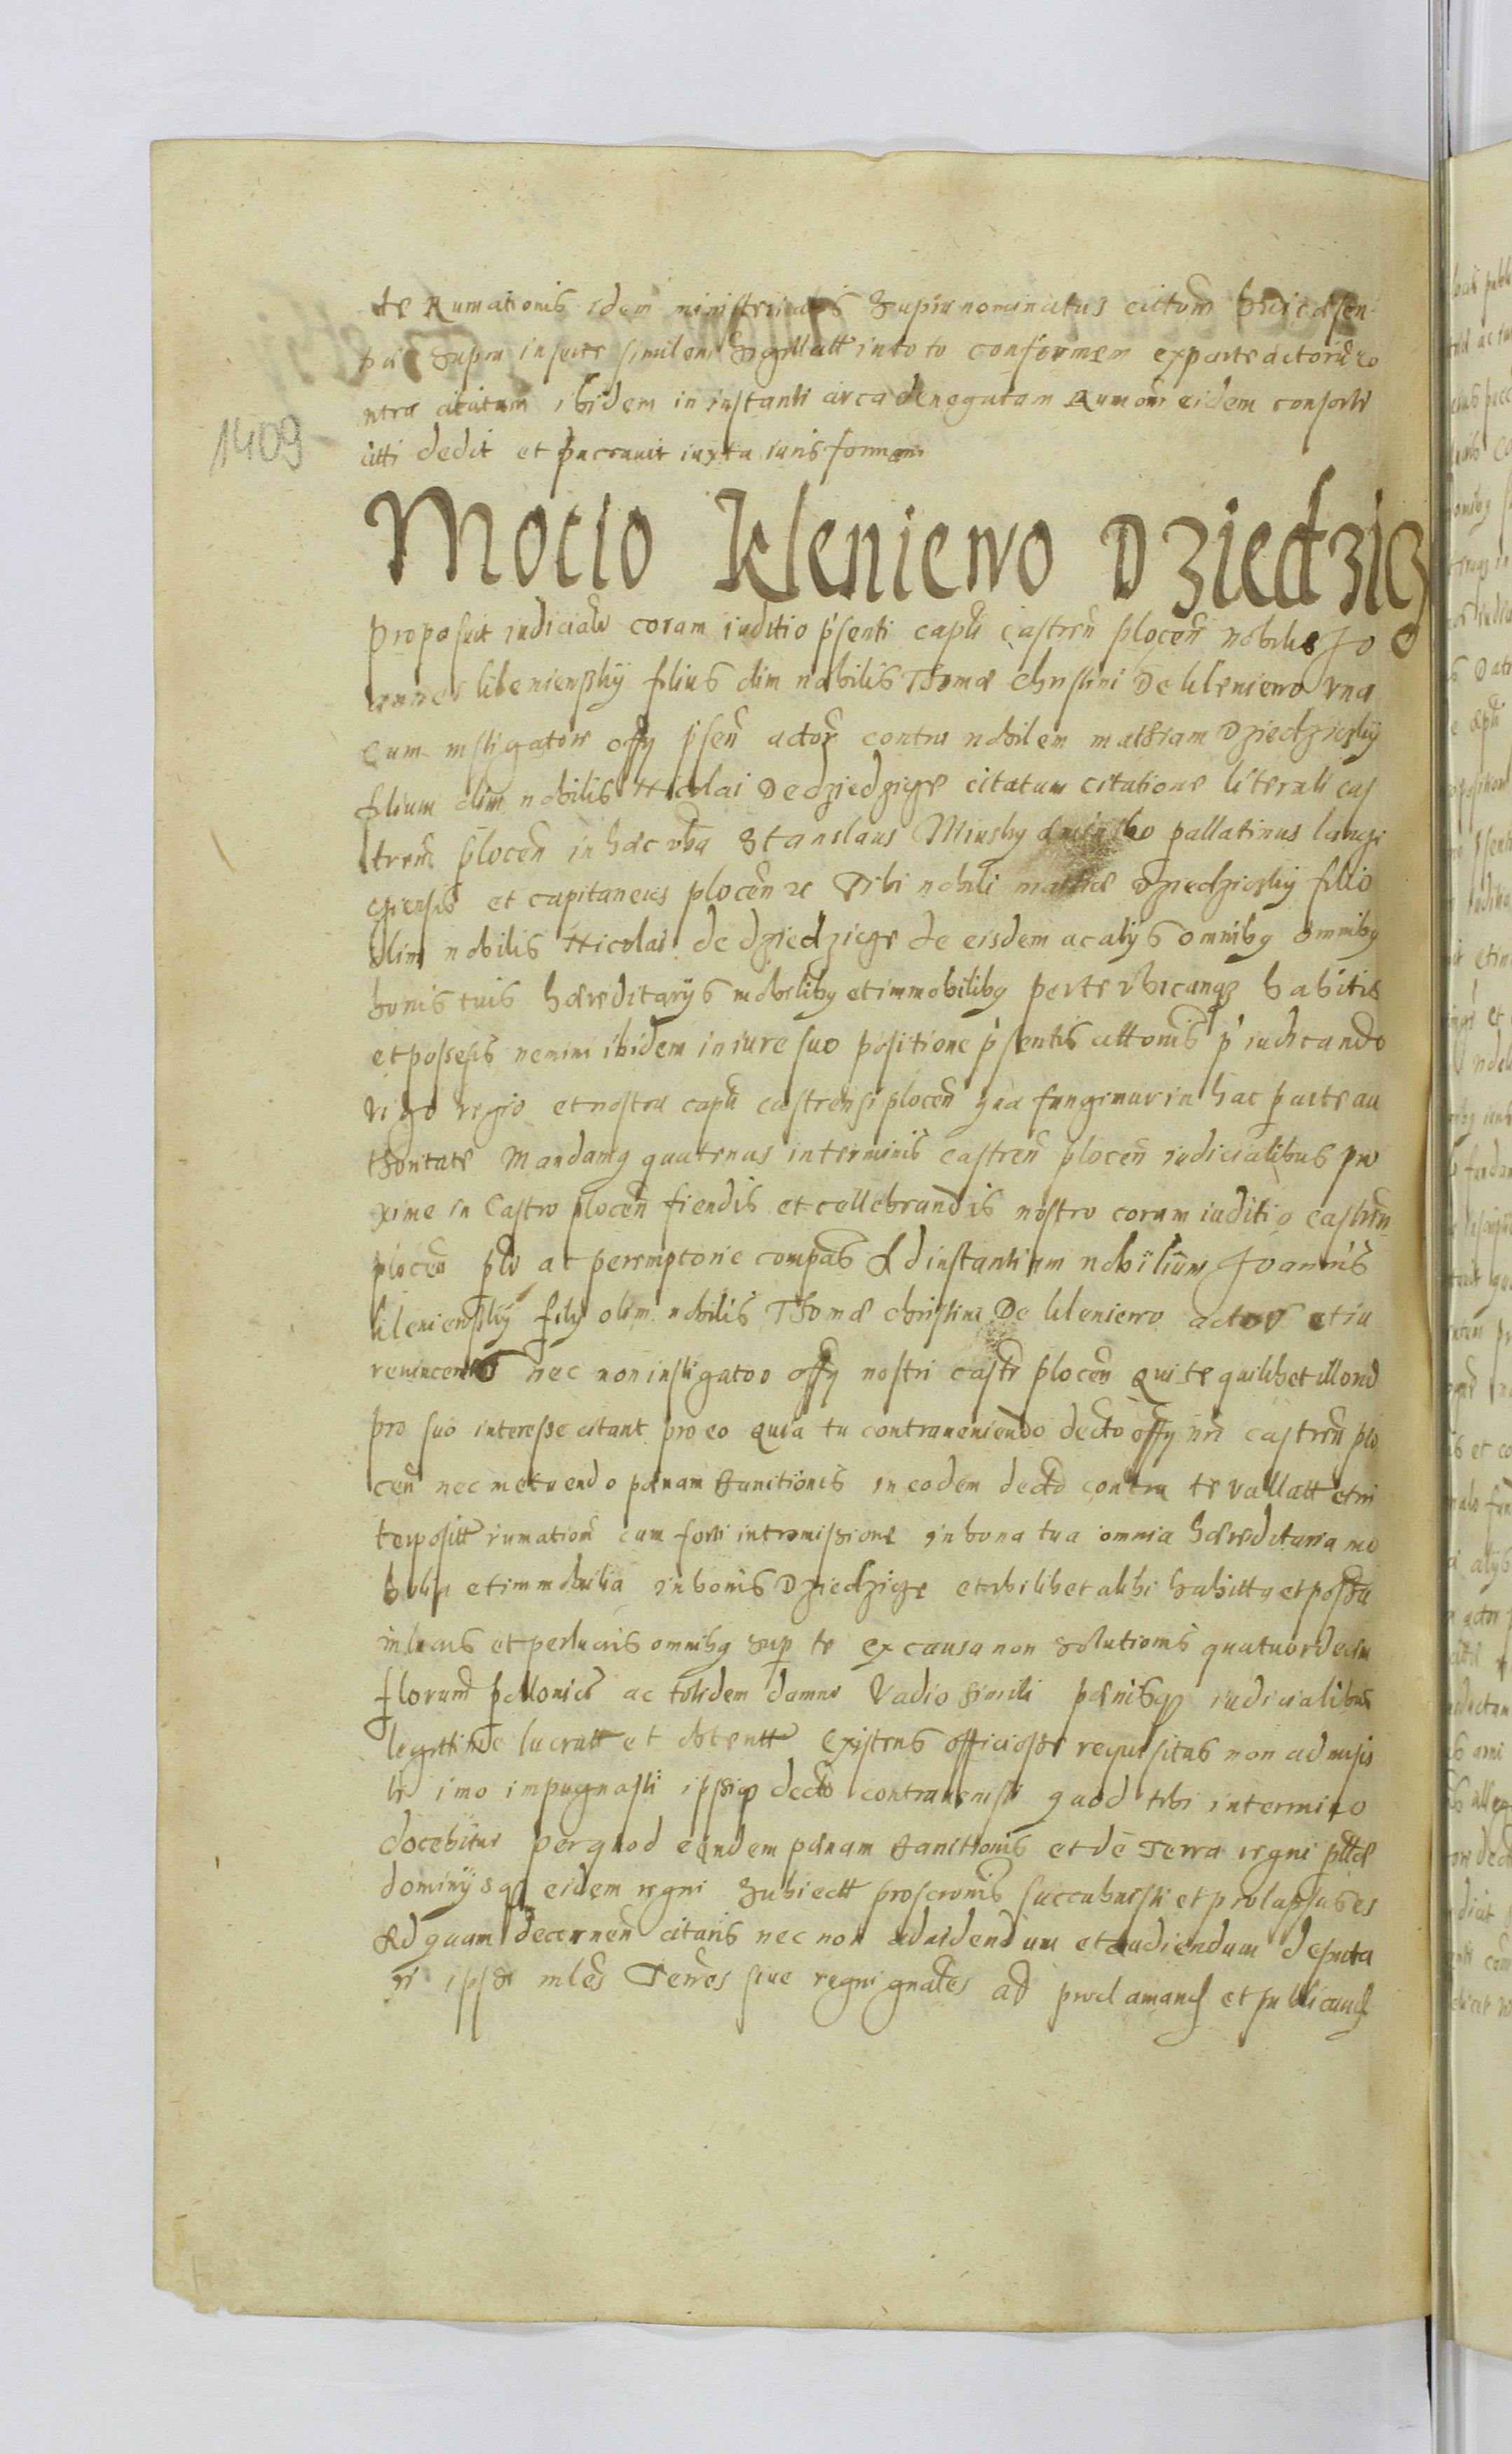 te Rumationis idem ministerialis Supra nominatus cittom huic
Supra inserte similem Sigillatt in toto conformem ex parte actorum co
ntra citatum ibidem in instanti circa denegatam Rumom eidem
citti dedit et iuxta iuris formam
1409
Mocio Kleniewo Dziedzicz
Proposuit iudicialr coram iuditio pñsenti capli castreñ plocen nobilis Jo
annes klenienskÿ filius olim nobilis Thomæ Christini De kleniewo vna
cum instigatore offÿ pñseñ actor contra nobilem mathiam Dziedziczkÿ
filium olim nobilis Nicolai De dziedzicze citatum citatione literali cas
treñ plocen in hæc vba Stanislaus Minsky de pallatinus lanczi
ciensis et capitaneus plocen zc Tibi nobili mathiæ dziedziczkÿ filio
olim nobilis Nicolai de dziedzicze de eisdem ac alÿs omnibq omnibq
bonis tuis hæreditarÿs mobilibq et immobilibq per te vbicunqz habitis
et possesis nemini ibidem in iure suo positione pñsentis cittonis pr iudicando
regio et nostra capli castrensi plocen qua fungimur in hac parte au
thoritate Mandamq quatenus in terminis castreñ plocen iudicialibus pro
xime in Castro plocen fiendis et cellebrandis nostro coram iuditio castren
plocen plr ac peremptorie compas Ad instantiam nobilium Joannis
klenienskÿ filÿ olim nobilis Thomæ christini De kleniewo actor
nec non instigator offÿ nostri castr plocen Qui te quilibet illorum
pro suo interesse citant pro eo Quia tu contraueniendo decto offÿ nri castreñ plo
cen nec metuendo pænam banitionis in eodem decto contra te vallatt et in
terpositt rumationi cum forti intromissione in bona tua omnia hæreditaria mo
bilia et immobilia in bonis Dziedzicze et vbilibet alibi habitta et possessa
in lucris et perlucris omnibq sup te ex causa non Solutionis quatuordecim
florum pollonical ac totidem damni Vadio simili pænisqz iudicialibus
legittime lucratt et obtentt existens officiose requisitus non admisis
ti imo impugnasti ipsiqz decto contrauenisti quod tibi in termino
docebitur per quod eandem pænam banitionis et de Terra regni pllæ
dominÿsqz eidem regni Subiectt proscronis succubuisti et prolapsus es
Ad quam decernen citaris nec non ad videndum et audiendum deputa
ri ipse mles Terres siue regni gnales ad proclamand et publicand